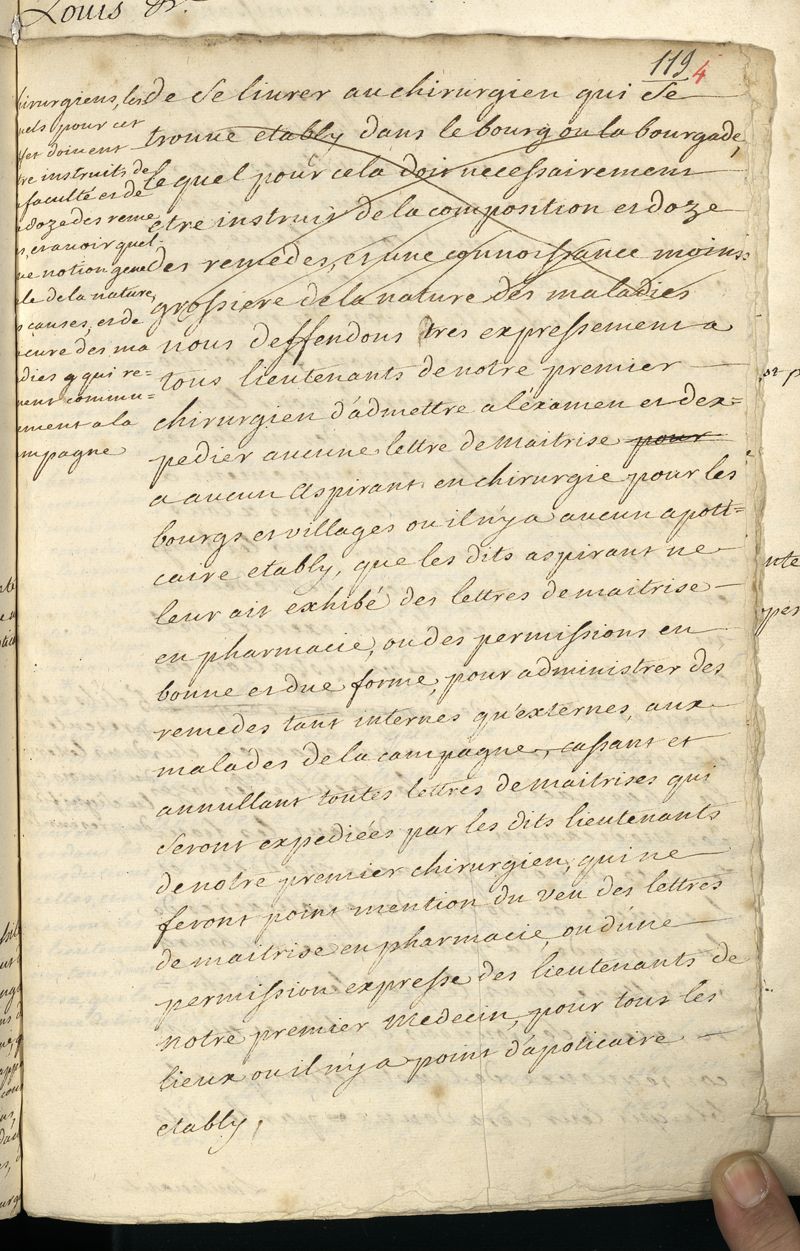 Louis &c.
119 4
de se livrer au chirurgien qui se
trouve etably dans le bourg ou la bourgade,
le quel pour cela doit necessairement
etre instruit de la composition et doze
des remedes, et une connoissance moins
grossiere de la nature des maladies
nous deffendons tres expressement a
tous lieutenants de notre premier
chirurgien d'admettre a l'examen et d'ex=
pedier aucune lettre de maitrise pour
a aucun aspirant en chirurgie pour les
bourgs et villages ou il n'y a aucun apoti=
caire etably, que les dits aspirant ne
leur ait exhibé des lettres de maitrise
en pharmacie, ou des permissions en
bonne et due forme, pour administrer des
remedes tant internes qu'externes, aux
malades de la campagne, cassant et
annullant toutes lettres de maitrises qui
seront expediées par les dits lieutenants
de notre premier chirurgien, qui ne
feront point mention du veu des lettres
de maitrise en pharmacie, ou d'une
permission expresse des lieutenants de
notre premier medecin, pour tous les
lieux ou il n'y a point d'apoticaire
etably,
hirurgiens, les
uels pour cet
fet doivent
tre instruits de
faculté et de
doze des reme
s, et avoir quel
ue notion gene
le de la nature,
causes, et de
cure des ma
dies q qui re=
nent commu=
ement a la
mpagne